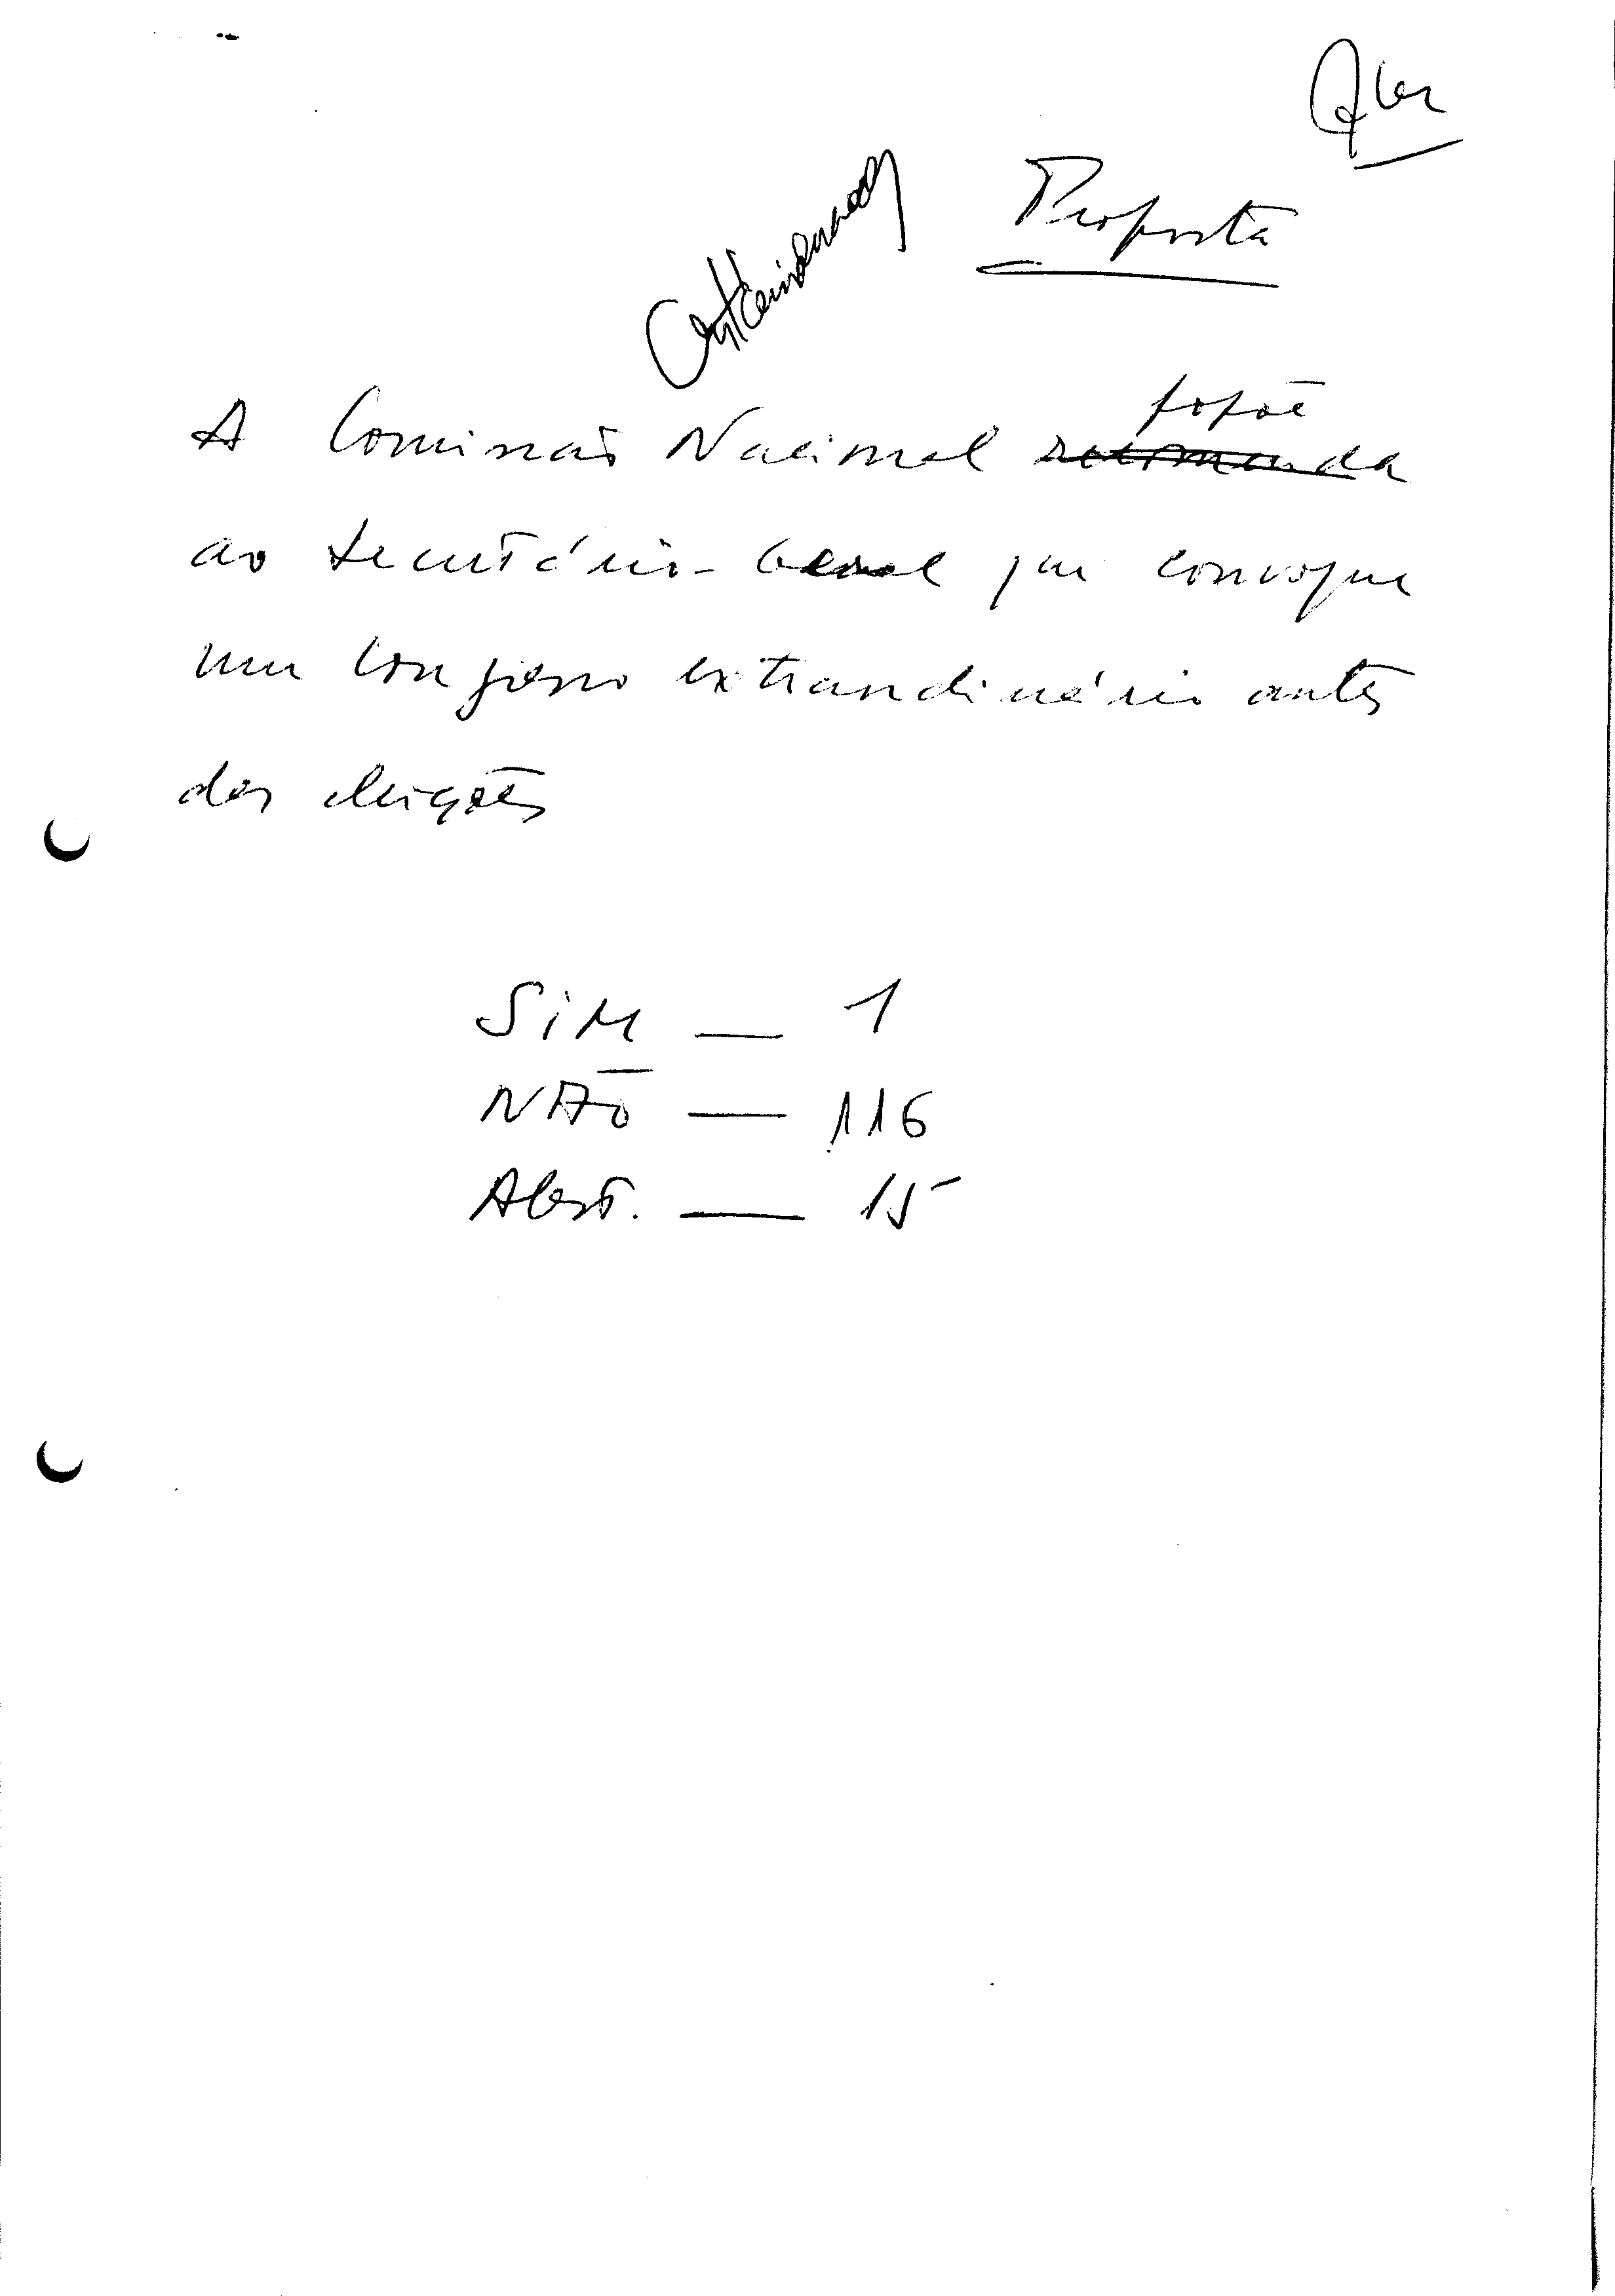 Proposta
propõe
A Comissão Nacional recomenda
ao Secretário-Geral que convoque
um Congresso extraordinário antes
das eleições
SIM — 1
NÃO — 116
Abst. — 15